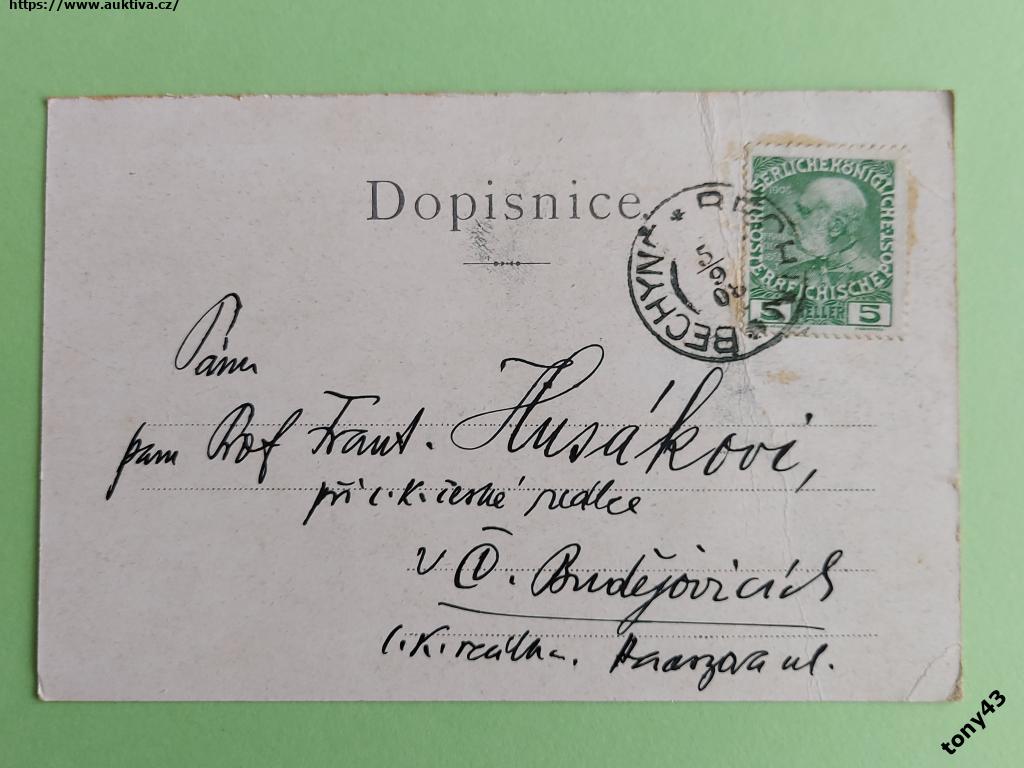 https://www.auktiva.cz/
Dopisnice.
BECHYNĚ * BECHIN *
5
KAISERLICHE KÖNIGLICHE ÖSTERREICHISCHE POST
1908
5 HELLER 5
Pánu
pam Prof Frant. Husákovi,
při c. K. české reálce
v Č. Budějovicích
C. K. reálka. ul.
tony43